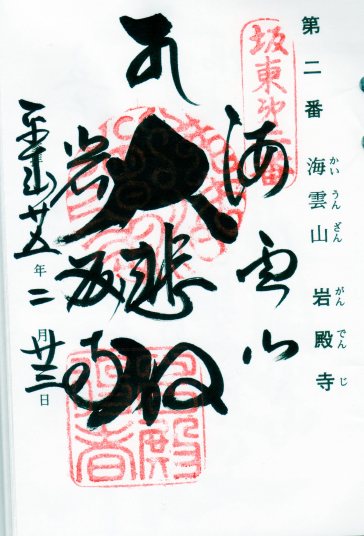 第二番 海雲山 岩殿寺
かいうんざん がんでんじ
坂東第二番
海雲山
奉
大悲殿
岩殿寺
平成廿五年二月廿三日